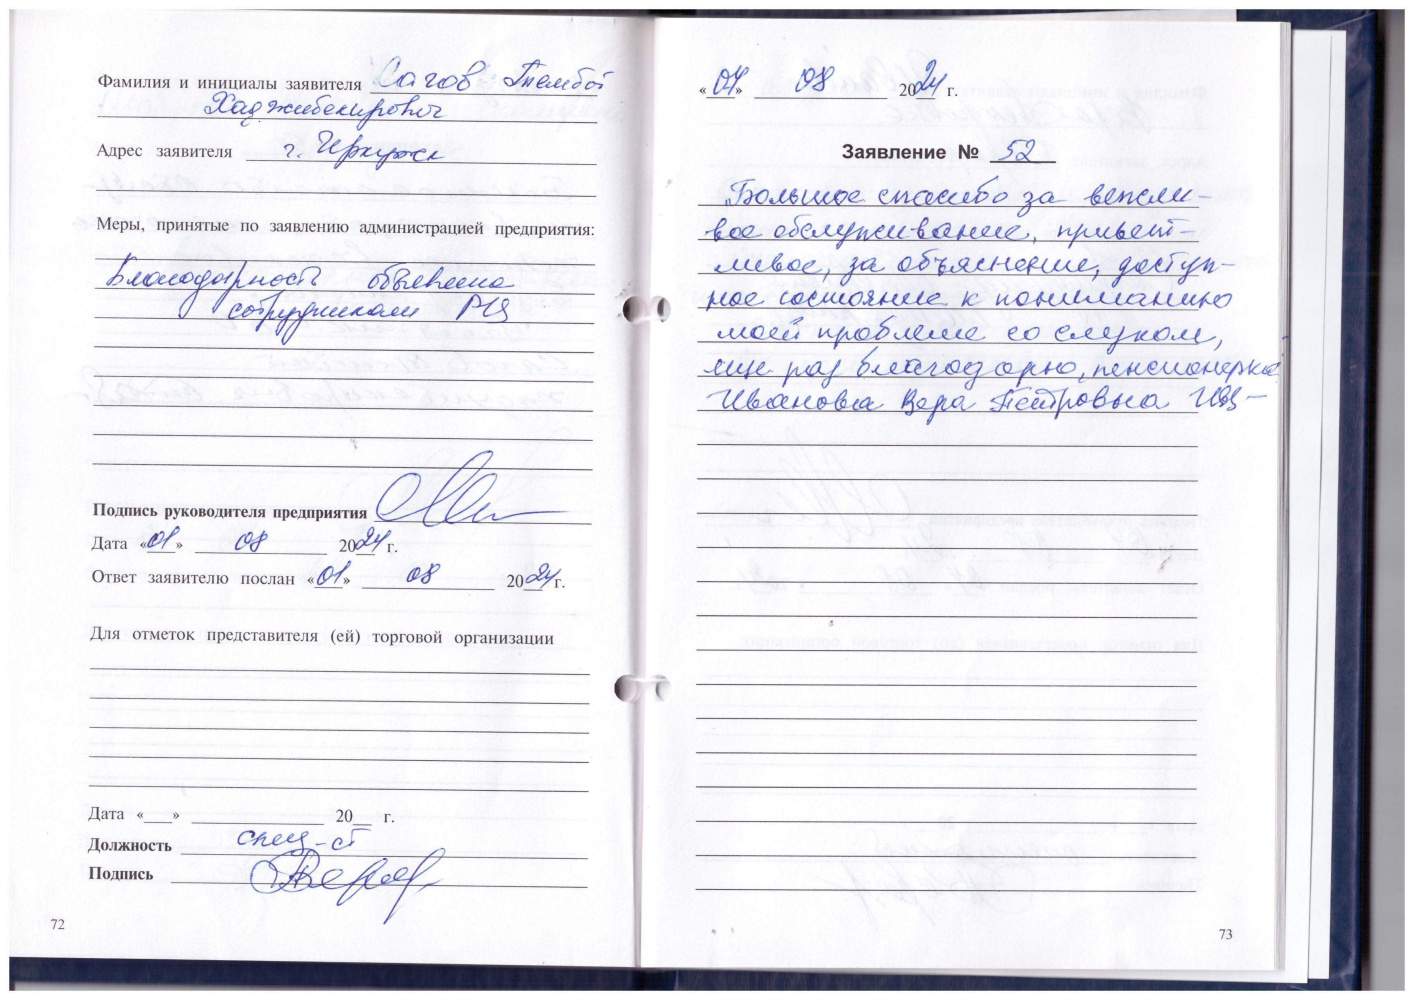 Фамилия и инициалы заявителя Сагов Тембот
Хаджибекирович
Адрес заявителя г. Черкесск
Меры, принятые по заявлению администрацией предприятия:
Благодарность объявлена
сотрудникам РЦ
Подпись руководителя предприятия
Дата «01» 08 2024 г.
Ответ заявителю послан «01» 08 2024 г.
Для отметок представителя (ей) торговой организации
Дата «___» 20__ г.
Должность спец-ст
Подпись
72
«07» 08 2024 г.
Заявление № 52
Большое спасибо за вежли-
вое обслуживание, привет-
ливое, за объяснение, доступ-
ное состояние к пониманию
моей проблеме со слухом,
еще раз благодарю, пенсионерка
Иванова Вера Петровна
73